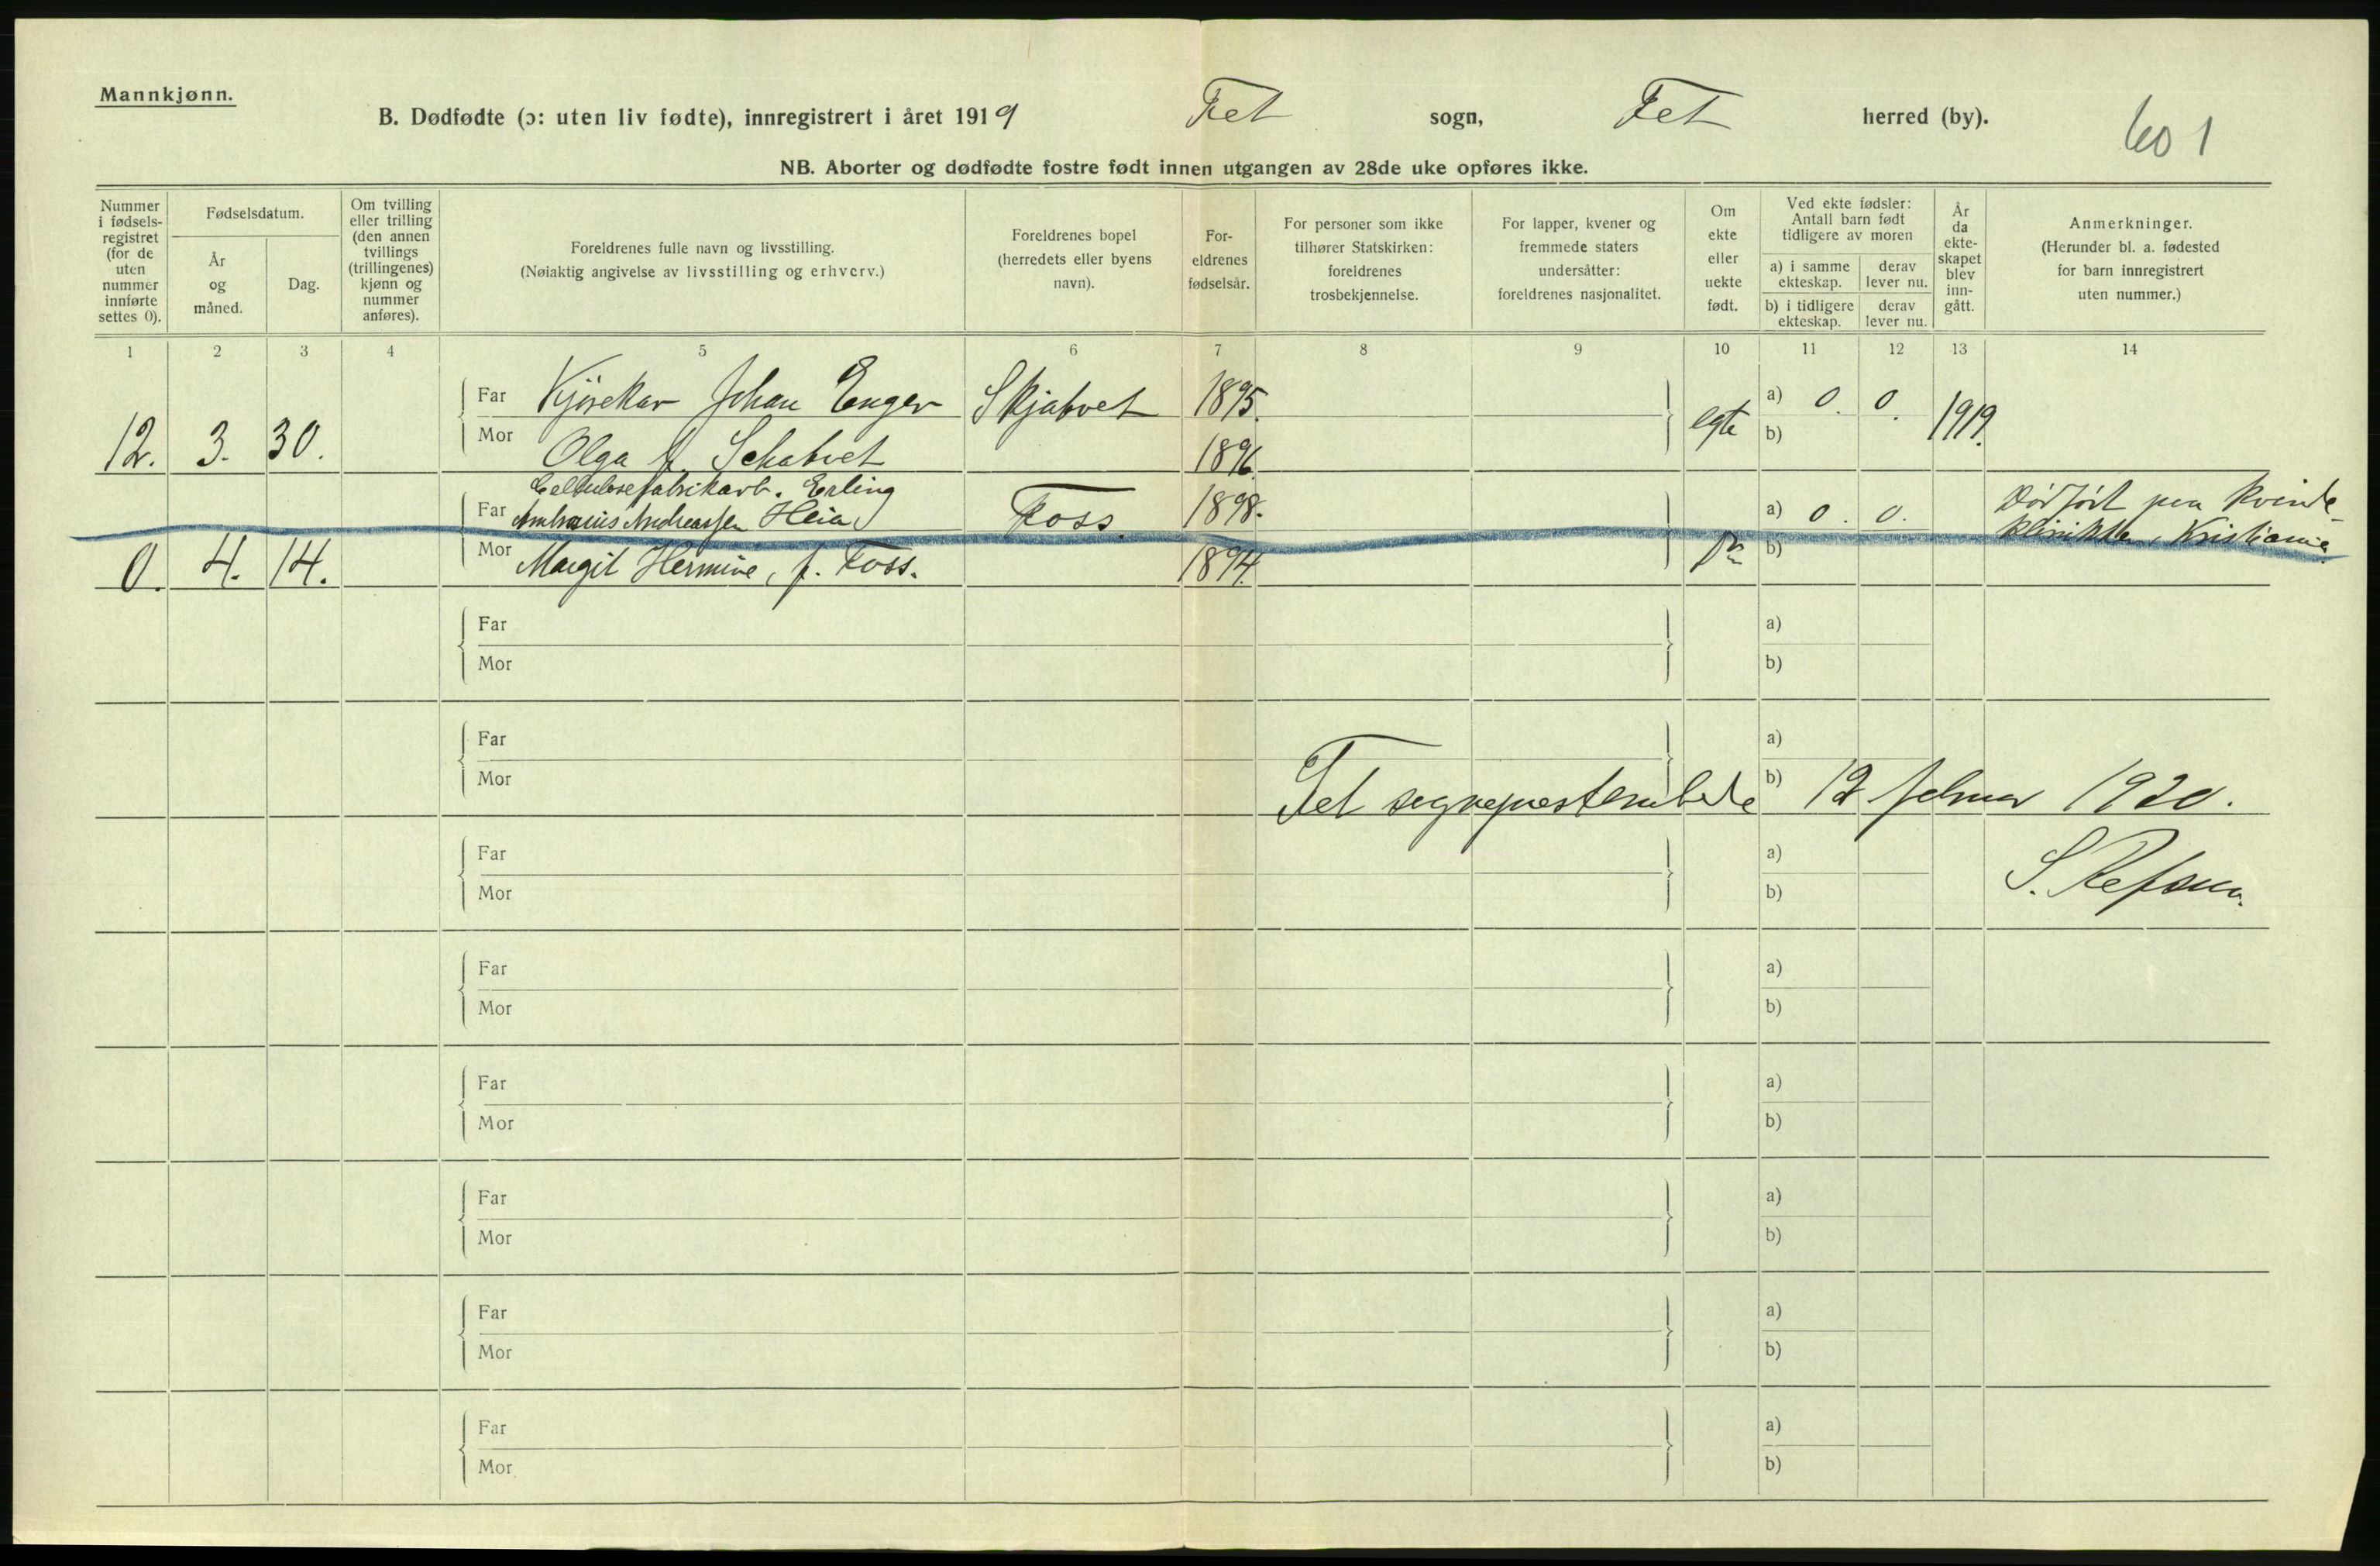 Mannkjønn.
B. Dødfødte (ɔ: uten liv fødte), innregistrert i året 1919 Fet sogn, Fet herred (by).
601
NB. Aborter og dødfødte fostre født innen utgangen av 28de uke opføres ikke.
Nummer i fødsels-registret (for de uten nummer innførte settes 0).
Fødselsdatum.
År og måned.
Dag.
Om tvilling eller trilling (den annen tvillings (trillingenes) kjønn og nummer anføres).
Foreldrenes fulle navn og livsstilling.
(Nøiaktig angivelse av livsstilling og erhverv.)
Foreldrenes bopel (herredets eller byens navn).
For-eldrenes fødselsår.
For personer som ikke tilhører Statskirken: foreldrenes trosbekjennelse.
For lapper, kvener og fremmede staters undersåtter: foreldrenes nasjonalitet.
Om ekte eller uekte født.
Ved ekte fødsler: Antall barn født tidligere av moren
a) i samme ekteskap.
derav lever nu.
b) i tidligere ekteskap.
derav lever nu.
År da ekte-skapet blev inn-gått.
Anmerkninger.
(Herunder bl. a. fødested for barn innregistrert uten nummer.)
1 2 3 4 5 6 7 8 9 10 11 12 13 14
Far Kjørekar Johan Enger Skjatvet 1895. a) 0. 0.
12. 3. 30. Mor Olga f. Schatvet 1896. egte b) 1919.
Cellulosefabrikarb. Erling
Far Andreassen Heia Foss 1898. a) 0. 0. Dødført paa Kvinde-
klinikken, Kristiania.
0. 4. 14. Mor Margit Hermine, f. Foss. 1894. b)
Far a)
Mor b)
Far a)
Mor b)
Fet sogneprestembede 12 februar 1920.
Far a)
S. Refsum.
Mor b)
Far a)
Mor b)
Far a)
Mor b)
Far a)
Mor b)
Far a)
Mor b)
Far a)
Mor b)